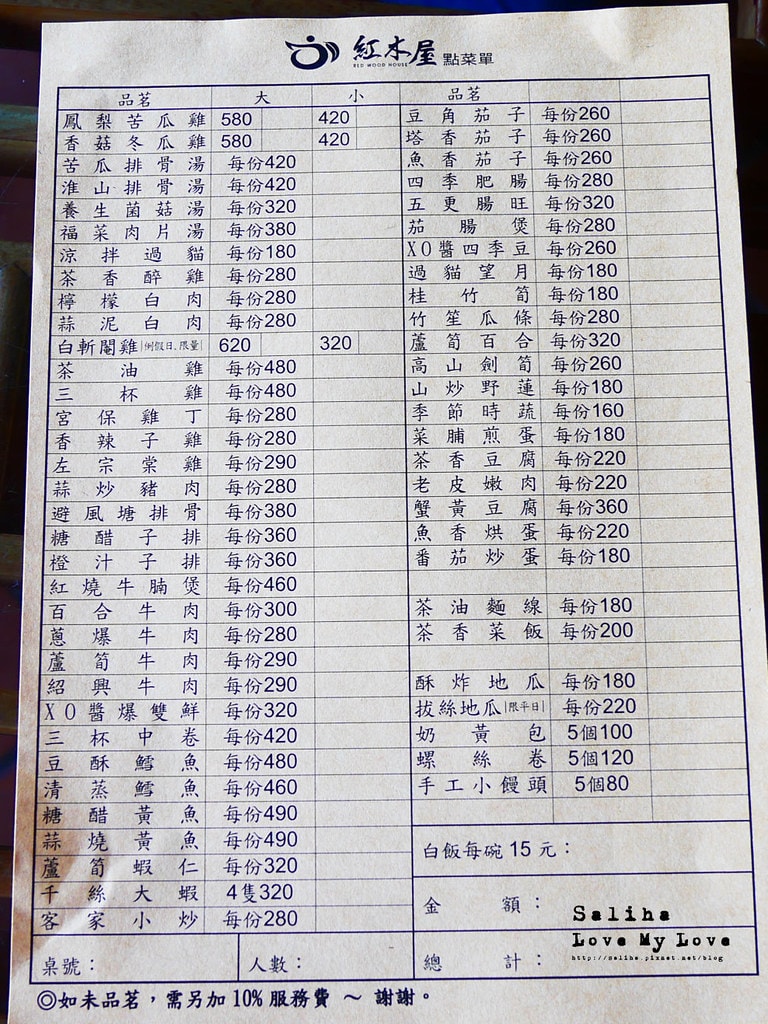 紅木屋 點菜單
RED WOOD HOUSE
品茗 大 小
鳳梨苦瓜雞 580 420
香菇冬瓜雞 580 420
苦瓜排骨湯 每份420
淮山排骨湯 每份420
養生菌菇湯 每份320
福菜肉片湯 每份380
涼拌過貓 每份180
茶香醉雞 每份280
檸檬白肉 每份280
蒜泥白肉 每份280
白斬閹雞|例假日、限量| 620 320
茶油雞 每份480
三杯雞 每份480
宮保雞丁 每份280
香辣子雞 每份280
左宗棠雞 每份290
蒜炒豬肉 每份280
避風塘排骨 每份380
糖醋子排 每份360
橙汁子排 每份360
紅燒牛腩煲 每份460
百合牛肉 每份300
蔥爆牛肉 每份280
蘆筍牛肉 每份290
紹興牛肉 每份290
XO醬爆雙鮮 每份320
三杯中卷 每份420
豆酥鱈魚 每份480
清蒸鱈魚 每份460
糖醋黃魚 每份490
蒜燒黃魚 每份490
蘆筍蝦仁 每份320
千絲大蝦 4隻320
客家小炒 每份280
品茗
豆角茄子 每份260
塔香茄子 每份260
魚香茄子 每份260
四季肥腸 每份280
五更腸旺 每份320
茄腸煲 每份280
XO醬四季豆 每份260
過貓望月 每份180
桂竹筍 每份180
竹笙瓜條 每份280
蘆筍百合 每份320
高山劍筍 每份260
山炒野蓮 每份180
季節時蔬 每份160
菜脯煎蛋 每份180
茶香豆腐 每份220
老皮嫩肉 每份220
蟹黃豆腐 每份360
魚香烘蛋 每份220
番茄炒蛋 每份180
茶油麵線 每份180
茶香菜飯 每份200
酥炸地瓜 每份180
拔絲地瓜|限平日| 每份220
奶黃包 5個100
螺絲卷 5個120
手工小饅頭 5個80
白飯每碗 15 元：
金額：
總計：
桌號： 人數：
◎如未品茗，需另加 10% 服務費 ～ 謝謝。
Saliha
Love My Love
http://saliha.pixnet.net/blog